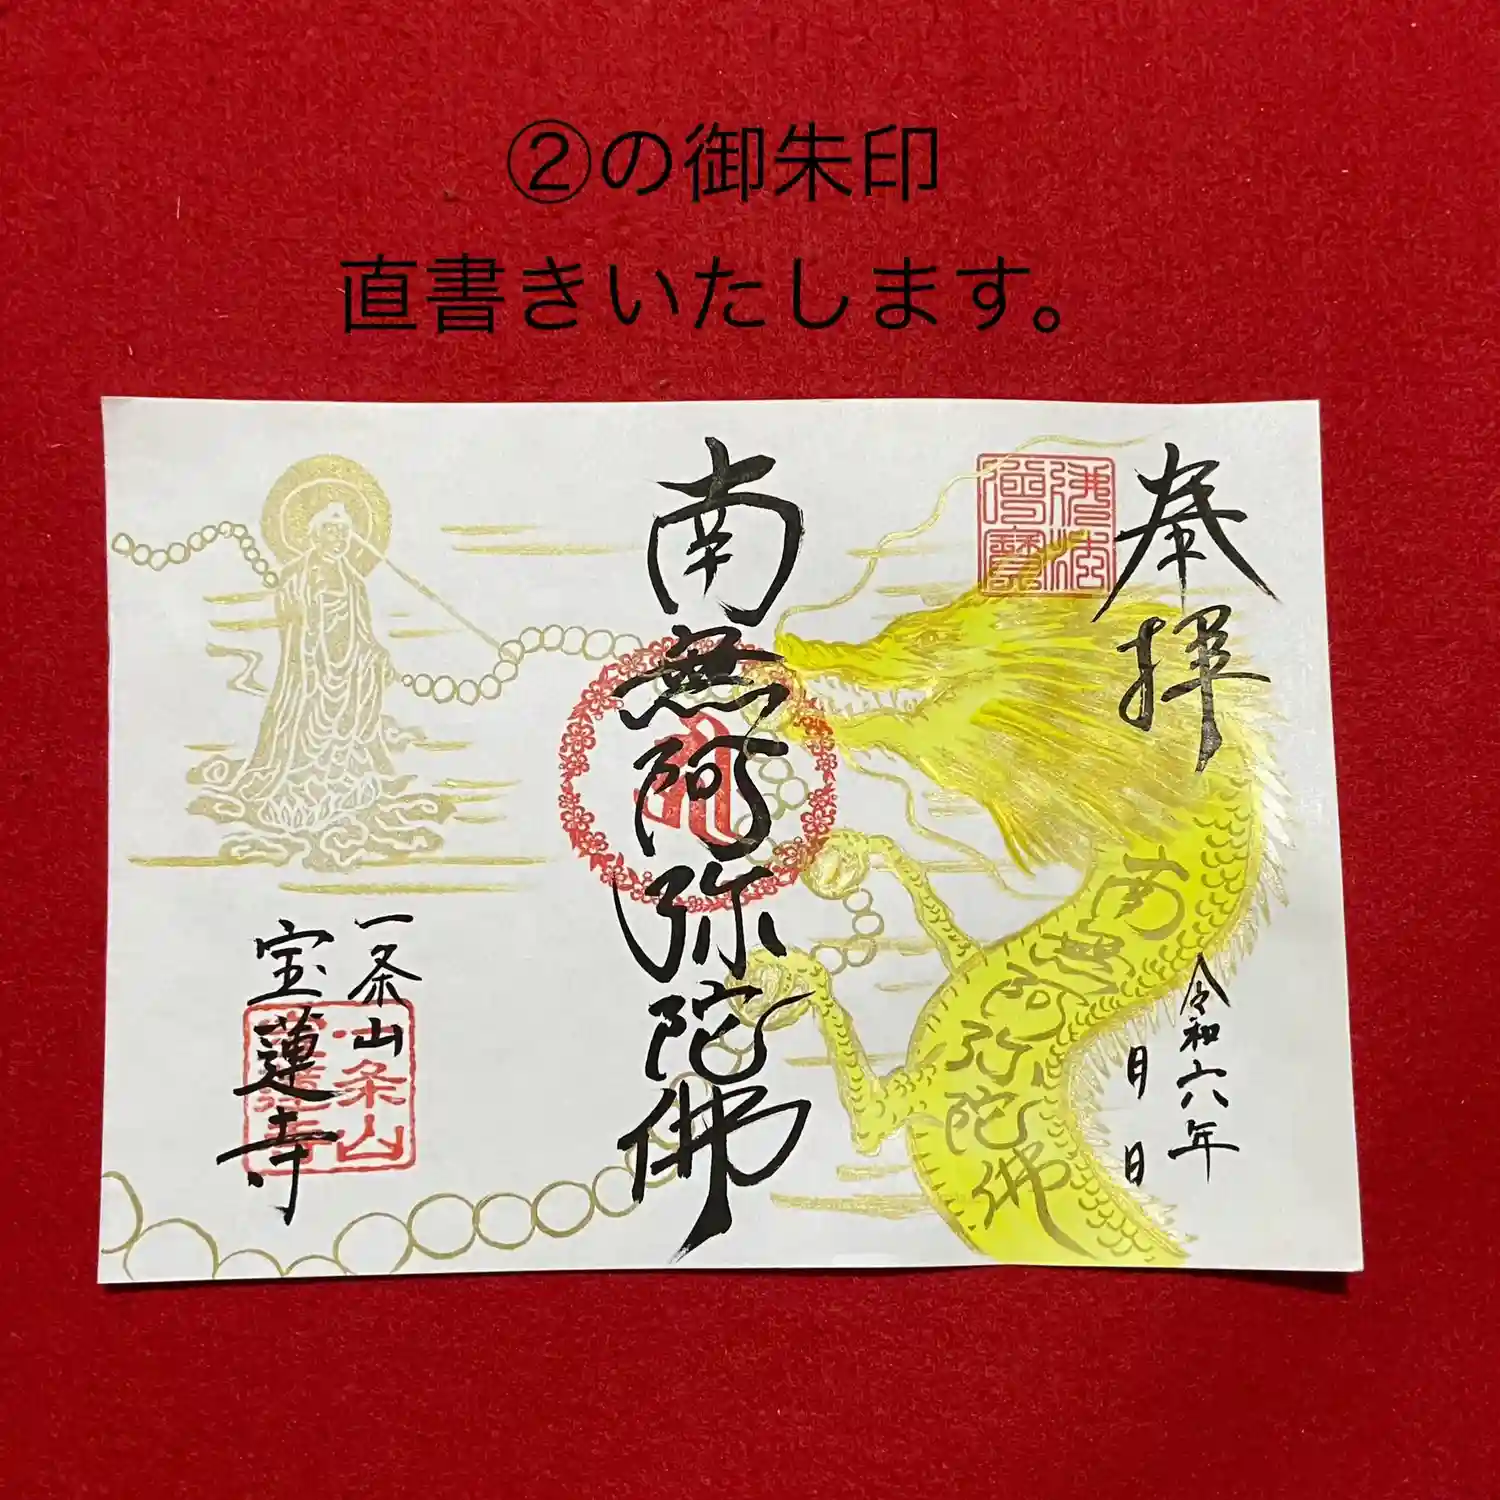 ②の御朱印
直書きいたします。
奉拝
令和六年
月 日
佛法
僧寳
南無阿弥陀佛
南無阿弥陀佛
一条山
宝蓮寺
一条山
宝蓮寺